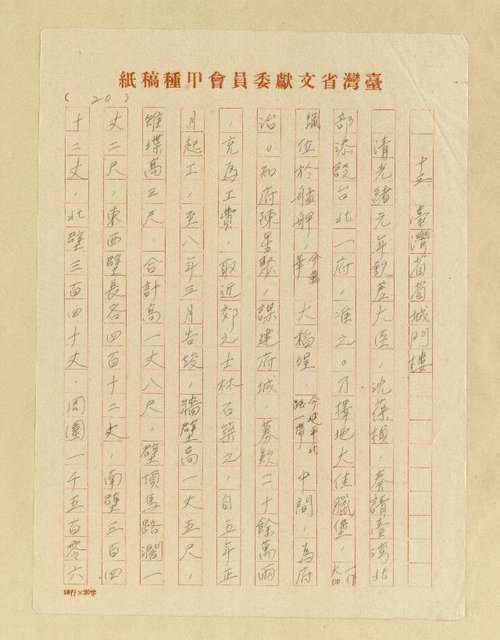 臺灣省文獻委員會甲種稿紙
(20)
臺灣省省城門樓
清光緒元年欽差大臣,沈葆楨,奏請臺灣北
部添設台北一府,准之。乃擇地大佳臘堡,一作大加
蠟位於艋舺,今萬華 大稻埕,今延平北路一帶 中間,為府
治。知府陳星聚,謀建府城,募款二十餘萬兩
,充為工費,取近郊之士林石築之,自五年正
月起工,至八年三月告竣,牆壁高一丈五尺,
雉堞高三尺,合計高一丈八尺,壁頂馬路濶一
丈二尺,東西壁長各四百十二丈,南壁三百四
十二丈,北壁三百四十丈,周圍一千五百零六
10行×20字